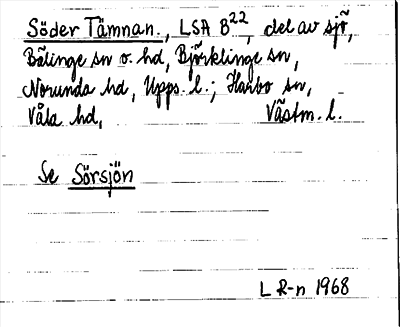 Söder Tämnan, LSA B22, del av sjö,
Bälinge sn o. hd, Björklinge sn,
Norunda hd, Upps. l.; Harbo sn,
Våla hd, Västm. l.
Se Sörsjön
L R-n 1968